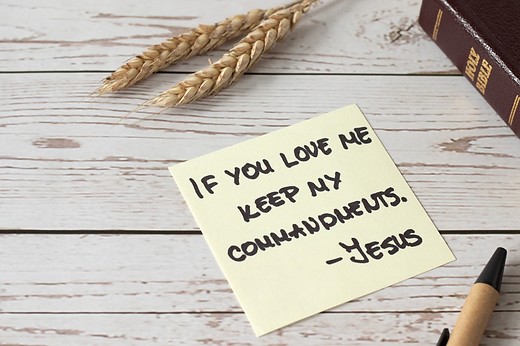 HOLY
BIBLE
IF YOU LOVE ME
KEEP MY
COMMANDMENTS.
-JESUS